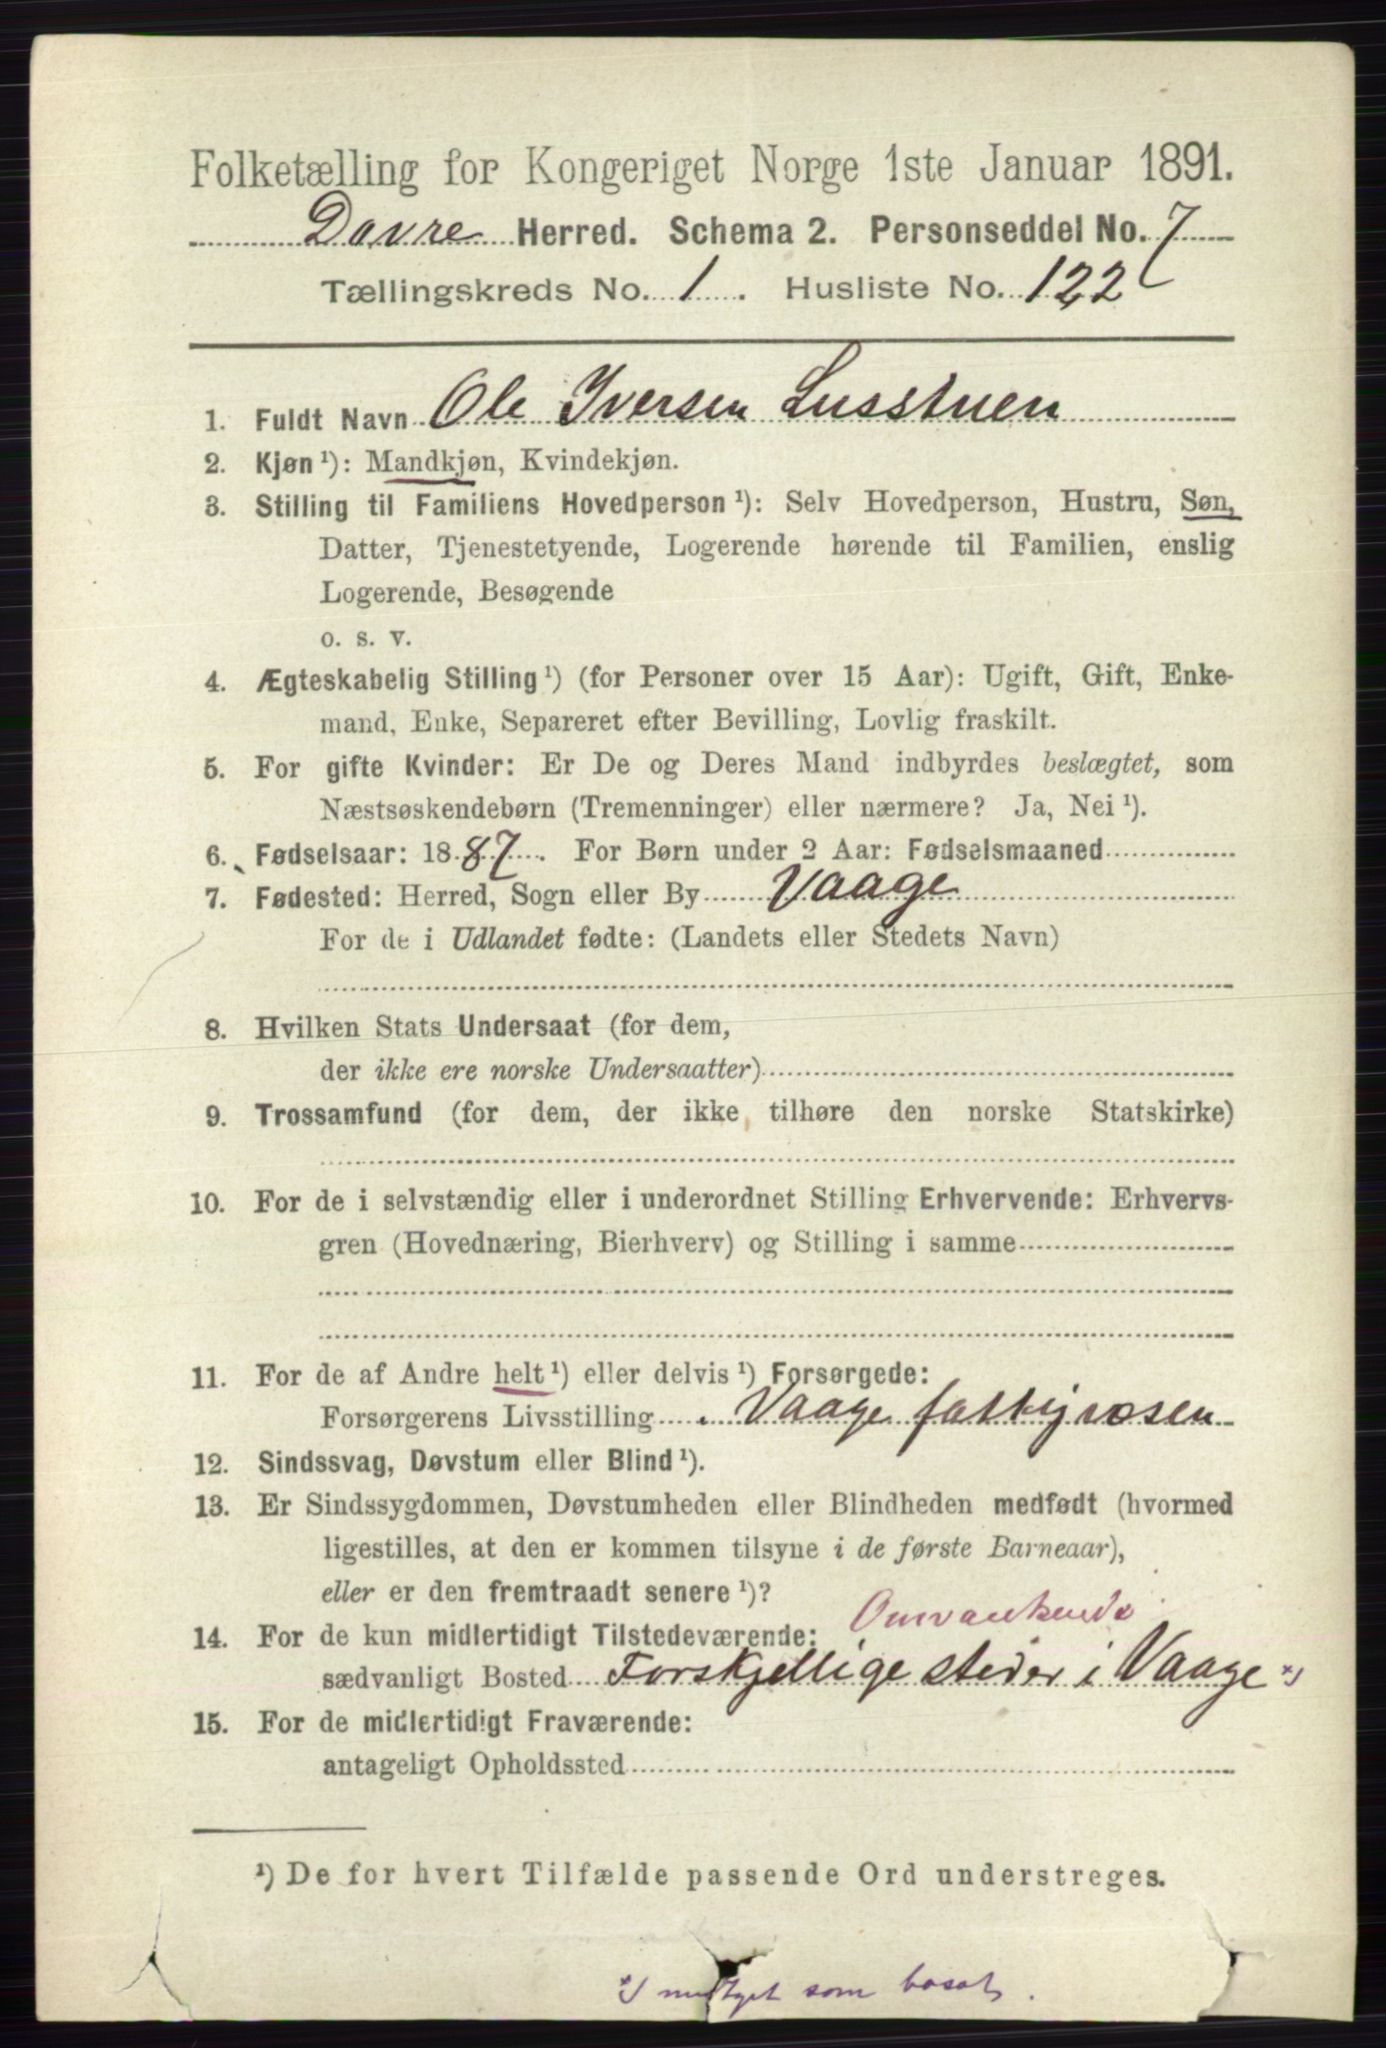 Folketælling for Kongeriget Norge 1ste Januar 1891.
Dovre Herred. Schema 2. Personseddel No. 7
Tællingskreds No. 1. Husliste No. 122
1. Fuldt Navn Ole Iversen Lusstuen
2. Kjøn ¹): Mandkjøn, Kvindekjøn.
3. Stilling til Familiens Hovedperson ¹): Selv Hovedperson, Hustru, Søn,
Datter, Tjenestetyende, Logerende hørende til Familien, enslig
Logerende, Besøgende
o. s. v.
4. Ægteskabelig Stilling ¹) (for Personer over 15 Aar): Ugift, Gift, Enke-
mand, Enke, Separeret efter Bevilling, Lovlig fraskilt.
5. For gifte Kvinder: Er De og Deres Mand indbyrdes beslægtet, som
Næstsøskendebørn (Tremenninger) eller nærmere? Ja, Nei ¹).
6. Fødselsaar: 1887. For Børn under 2 Aar: Fødselsmaaned
7. Fødested: Herred, Sogn eller By Vaage
For de i Udlandet fødte: (Landets eller Stedets Navn)
8. Hvilken Stats Undersaat (for dem,
der ikke ere norske Undersaatter)
9. Trossamfund (for dem, der ikke tilhøre den norske Statskirke)
10. For de i selvstændig eller i underordnet Stilling Erhvervende: Erhvervs-
gren (Hovednæring, Bierhverv) og Stilling i samme
11. For de af Andre helt ¹) eller delvis ¹) Forsørgede:
Forsørgerens Livsstilling Vaage fattigvæsen
12. Sindssvag, Døvstum eller Blind ¹).
13. Er Sindssygdommen, Døvstumheden eller Blindheden medfødt (hvormed
ligestilles, at den er kommen tilsyne i de første Barneaar),
eller er den fremtraadt senere ¹)?
Omvankende
14. For de kun midlertidigt Tilstedeværende:
sædvanligt Bosted Forskjellige steder i Vaage *)
15. For de midlertidigt Fraværende:
antageligt Opholdssted
¹) De for hvert Tilfælde passende Ord understreges.
*) som bosat.